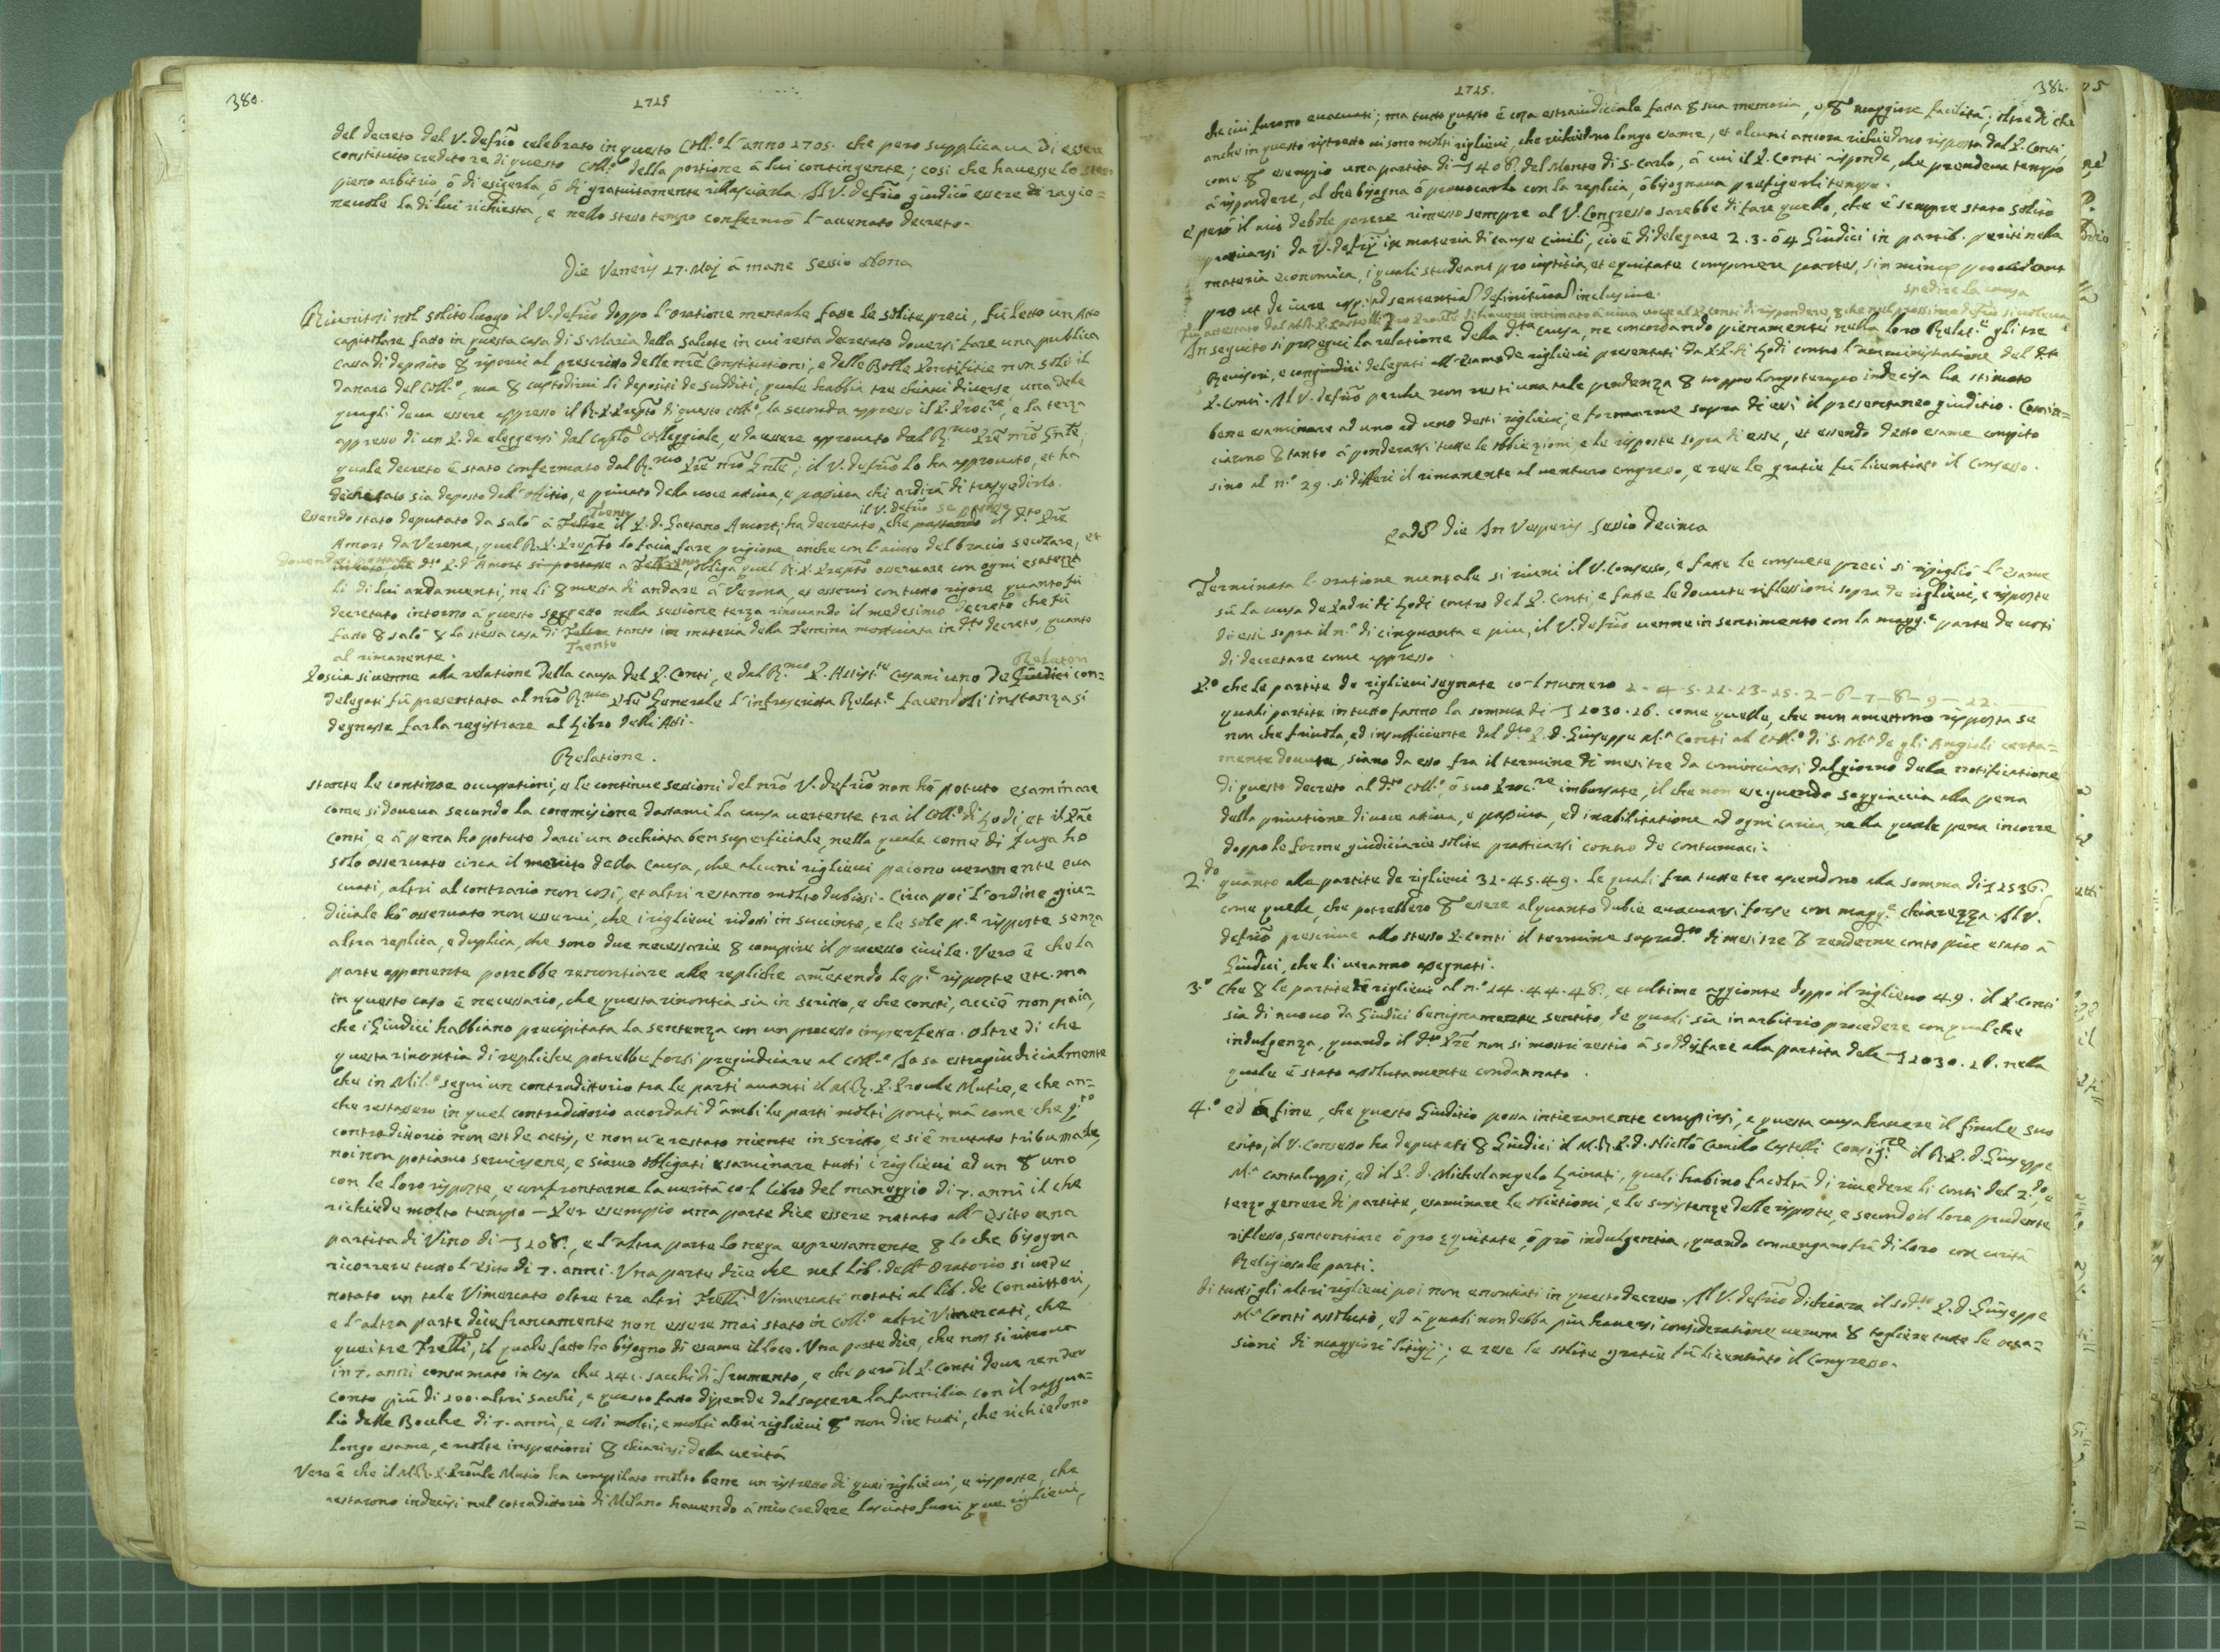 380.
1715
del decreto del V. defrio celebrato in questo Coll.o l'anno 1705. che pero supplicava di essere
constituito creditore di questo Coll.o della portione à lui contingente; così che havesse lo stesso
pieno arbitrio ò di esigerla, ò di gratuitamente rillasciarla. Il V. defrio giudicò essere ragio=
nevole la di lui richiesta, e nello stesso tempo confermò l'accenato decreto.
Die Veneris 17. Maj à mane sessio Nona
Riunitosi nel solito luogo il V. defrio doppo l'oratione mentale fatte le solite preci, fù letto un Atto
capitolare fatto in questa casa di S. Maria della Salute in cui resta decretato doversi fare una publica
cassa di deposito & riporvi al prescritto delle nre Constitutioni, e delle Bolle Pontificie non solo il
danaro del Coll.o, ma & custodirvi li depositi de sudditi, quale habbia tre chiavi diverse, una dele
quagli deva essere appresso il R. P. Prepto di questo coll.o, la seconda appresso il P. Proc.re, e la terza
appresso di un P. da eleggersi dal Capto Colleggiale, e da essere approvato dal R.mo Pre nro Gnle,
quale decreto è stato confermato dal R.mo Pre nro Gnle; il V. defrio lo ha approvato, et ha
dechiarato sia deposto dall'offitio, e privato dela voce attiva, e passiva chi ardirà di trasgredirlo.
Trento il V. defrio se
Essendo stato deputato da salò à Feltre il P. D. Gaetano Amort; ha decretato, che passando il d.to Pre
Amort da Verona, quel R. P. Prepto lo facia fare prigione anche con l'aiuto del bracio secolare, et
d.to P. D. Amort si portasse a, obliga quel R. P. Prepto osservare con ogni esatezza
li di lui andamenti, ne li & metta di andare à Verona, et esservi con tutto rigore quanto fù
decretato intorno à questo soggetto nella sessione terza rinovando il medesimo decreto che fù
fatto & salò & la stessa casa di Feltre tanto in materia della Femina mentuvata in d.to decreto, quanto
Trento
al rimanente.
Relatori
Poscia si venne alla relatione della causa del P. Conti, e dal R.mo P. Assist.te Cusani uno de Giudici con=
delegati fù presentata al nro R.mo Pre Generale l'infrascritta Relat.e facendoli instanza si
degnasse farla registrare al Libro delli Atti.
Relatione.
Stante le continoe occupationi, e le continue sessioni del nro V. defrio non hò potuto esaminare
come si doveva secondo la commissione datami la causa vertente tra il Coll.o di Lodi, et il Pre
Conti, e à pena ho potuto darci un occhiata ben superficiale, nella quale come di fuga ho
solo osservato circa il merito della causa, che alcuni riglievi paiono veramente eva
cuati, altri al contrario non così, et altri restano molto dubiosi. Circa poi l'ordine giu=
diciale hò osservato non esservi, che i riglievi ridotti in succinto, e le sole p.e risposte senza
altra replica, e duplica, che sono due necessarie & compire il processo civile. Vero è che la
parte opponente potrebbe renontiare alle repliche ametendo le p.e risposte etc. ma
in questo caso è necessario, che questa rinontia sia in scritto, e che consti, acciò non paia,
che i Giudici habbiano precipitata la sentenza con un processo imperfetto. Oltre di che
questa rinontia di repliche potrebbe forsi pregiudiciare al Coll.o Io so estragiudicialmente
che in Mil.o seguì un contraditorio tra le parti avanti il M.R. P. Proule Mutio, e che an=
che restassero in quel contraditorio accordati d'ambi le parti molti ponti, mà come che q.to
contraditorio non est de actis, e non v'è restato niente in scritto, e si è mutato tribunale,
noi non potiamo servirsene, e siamo obligati esaminare tutti i riglievi ad un & uno
con le loro risposte, e confrontarne la verità co-l libro del maneggio di 7. anni il che
richiede molto tempo — Per esempio una parte dice essere notato all'Esito una
partita di Vino di 108., e l'altra parte lo nega espressamente & lo che bisogna
ricorrere tutto l'esito di 7. anni. Una parte dice che nel Lib. dell'Oratorio si vede
notato un tale Vimercato oltre tre altri Frelli Vimercati notati al lib. de Convittori,
e l'altra parte dice francamente non essere mai stato in Coll.o altri Vimercati, che
quei tre Frelli, il quale fatto ha bisogno di esame il loco. Una parte dice, che non si ritrova
in 7. anni consumato in casa che 241. sacchi di frumento, e che però il P. Conti deve render
conto più di 100. altri sacchi, e questo fatto dipende dal sapere la familia con il raggua=
lio delle Bocche di 7. anni, e così molti, e molti altri riglievi & non dire tutti, che richiedono
longo esame, e molte inspetioni & chiarirsi della verità
Vero è che il M.R. P. Proule Mutio ha compilato molto bene un ristretto di quei riglievi, e risposte, che
restarono indecisi nel cotraditorio di Milano havendo à mio credere lasciato fuori que riglievi,
1715.
381.
che ivi furono evacuati; ma tutto questo è cosa estraiudiciale fatta & sua memoria, e & maggiore facilità; oltre di che
anche in questo ristretto vi sono molti riglievi, che richiedono longo esame, et alcuni ancora richiedono risposta dal P. Conti
come & esempio una partita di 1408. del Monte di S. Carlo, à cui il P. Conti risponde, che prendeva tempo
à rispondere, al che bisogna ò provocarlo con la replica, ò bisognava prefigerli tempo.
e però il mio debole parere rimesso sempre al V. Congresso sarebbe di fare quello, che è sempre stato solito
praticarsi da V. defrij in materia di cause civili, cioè di delegare 2. 3. ò 4 Giudici in partib. periti nella
materia economica, i quali studeant pro iustitia, et equitate componere partes, sin minus procedant
pro ut de iure usq. ad sententia definitiva inclusive.
spedire la causa
In seguito si proseguì la relatione della d.ta causa, ne concordando pienamente nella loro Relat.e gli tre
Revisori, e congiudici delegati all'esame de riglievi presentati da P.P. di Lodi contro l'amministratione del d.to
P. Conti. Il V. defrio perche non resti una tale pendenza & troppo longo tempo indecisa ha stimato
bene esaminare ad uno ad uno detti riglievi, e formarne sopra di essi il presentaneo giuditio. Comin=
ciarono & tanto à ponderarsi tutte le obbiezioni, e le risposte sopra di esse, et essendo detto esame compito
sino al n.o 29. si differì il rimanente al venturo congresso, e rese le gratie fù licentiato il Consesso.
Eadē die In Vesperis Sessio decima
Terminata l'oratione mentale si riunì il V. Consesso, e fatte le consuete preci si ripigliò l'esame
sù la causa de Padri di Lodi contro del P. Conti, e fatte le dovute riflessioni sopra de riglievi, e risposte
di essi sopra il n.o di cinquanta e più, il V. defrio venne in sentimento con la magg.e parte de voti
di decretare come appresso.
P.o che le partite de riglievi segnate co-l numero 1 - 4 - 5 - 11 - 13 - 15 - 2 - 6 - 7 - 8 - 9 - 12.
quali partite in tutto fanno la somma di 1030.16. come quelle, che non amettono risposta se
non che frivola, ed insufficiente dal d.to P. D. Giuseppe M.a Conti al Coll.o di S. M.a de gli Angioli certa=
mente dovute, siano da esso fra il termine di mesi tre da cominciarsi dal giorno dela notificatione
di questo decreto al d.to Coll.o, ò suo Proc.re imborsate, il che non eseguendo soggiaccia alla pena
della privatione di voce attiva, e passiva, ed inabilitatione ad ogni carica, nella quale pena incorre
doppo le forme giudiciarie solite praticarsi contro de contumaci.
2.do quanto alle partite de riglievi 31. 45. 49. le quali fra tutte tre ascendono alla somma di 1536.
come quelle, che potrebbero & essere alquanto dubie evacuarsi forse con magg.e chiarezza. Il V.
defrio prescrive allo stesso P. Conti il termine soprad.to di mesi tre & renderne conto più esato à
Giudici, che li veranno assegnati.
3.o Che & le partite de riglievi al n.o 14. 44. 48., et ultime aggionte doppo il riglievo 49. il P. Conti
sia di nuovo da Giudici benignamente sentito, de quali sia in arbitrio procedere con qualche
indulgenza, quando il d.to Pre non si mostri restio à soddisfare alla partita dele 1030.16. nella
quale è stato assolutamente condannato.
4.o ed à fine, che questo Giuditio possa intieramente compirsi, e questa causa havere il finale suo
esito, il V. Consesso ha deputati & Giudici il M.R. P. D. Nicolò Camillo Castelli Consig.re il R. P. D. Giuseppe
M.a Cantaluppi, ed il P. D. Michelangelo Lainati, quali habino facoltà di rivedere li conti del 2.do e
terzo genere di partite, esaminare le obietioni, e le susistenze delle risposte, e secondo il loro prudente
riflesso, sententiare ò pro equitate, ò prò indulgentia, quando convengano frà di loro con carità
Religiosa le parti.
Di tutti gli altri riglievi poi non enontiati in questo decreto. Il V. defrio dichiara il sod.to P. D. Giuseppe
M.a Conti assoluto, ed à quali non debba più haversi consideratione veruna & togliere tutte le occa=
sioni di maggiori litigij; e rese le solite gratie fù licentiato il Congresso.